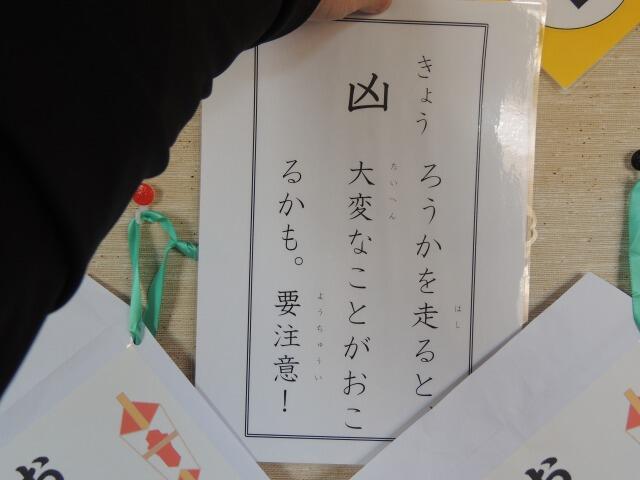 きょう
凶
ろうかを走ると、
はし
大変なことがおこ
たいへん
るかも。要注意！
ようちゅうい
お
お